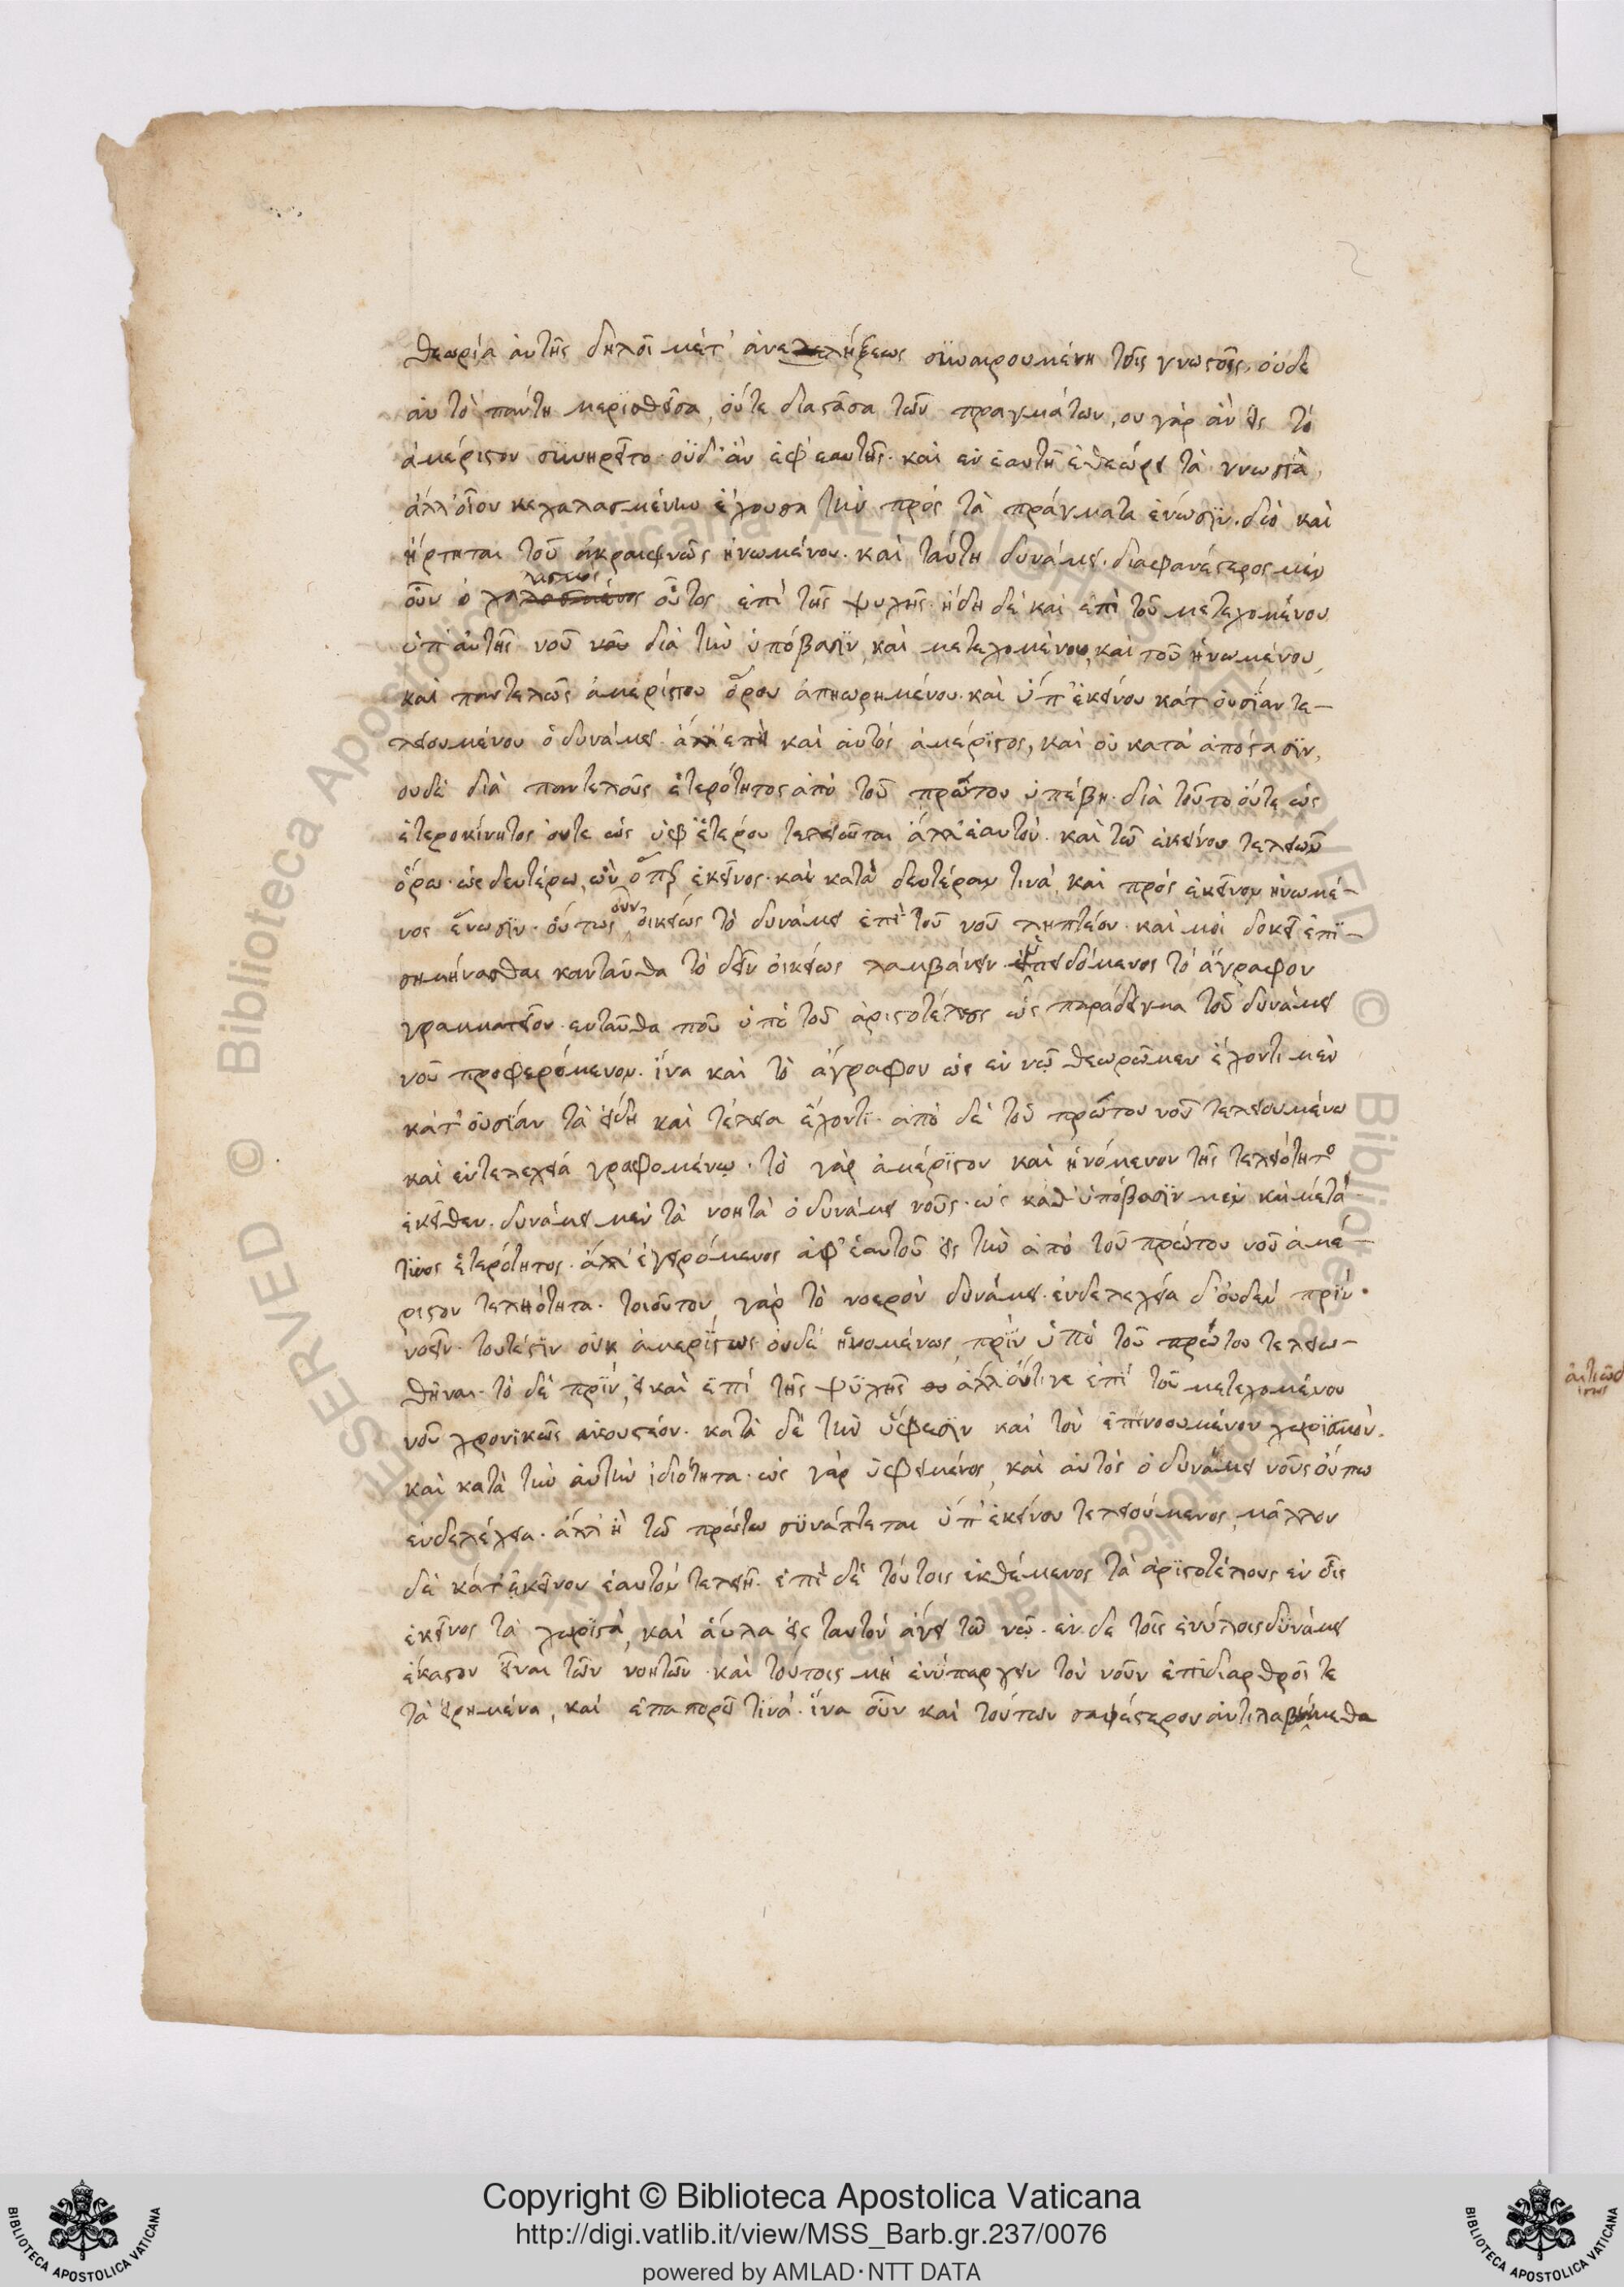 θεωρία ἀυτῆς δηλοῖ μετ' ἀνελήξεως συναιρουμένη τοῖς γνωστοῖς, ουδε
ἀυτὸ πάντη μερισθεῖσα, ὄυτε διαστᾶσα τῶν πραγμάτων, ου γὰρ ἀν εἰς τὸ
ἀμέριστον συνηρεῖτο· οὐδ' ἀν ἐφ εαυτῆς· καὶ ἐν ἑαυτῆ ἐθεώρει τὰ γνωστὰ,
ἀλλ' οἷον κεχαλασμένην ἔχουσα τὴν πρὸς τὰ πράγματα ἑνώσιν· διὸ καὶ
ἤρτηται τοῦ ἀκραιφνῶς ἡνωμένου· καὶ ταύτη δυνάμει· διαφανέστερος μὲν
οὖν ὁ χαλασμὸς οὗτος ἐπὶ τῆς ψυχῆς· ἤδη δὲ καὶ ἐπὶ τοῦ μετεχομένου
ὑπ' ἀυτῆς νοῦ διὰ τὴν ὑπόβασιν, καὶ μετεχομένου, καὶ τοῦ ἡνωμένου,
καὶ παντελῶς ἀμερίστου ὅρου ἀπηωρημένου· καὶ ὑπ' ἐκείνου κάτ' ὀυσίαν τε-
λειουμένου ὁ δυνάμει· ἀλλ' ἐπεὶ καὶ ἀυτὸς ἀμέριστος, καὶ ὀυ κατὰ ἀπόστασιν,
ουδὲ διὰ παντελοῦς ἑτερότητος ἀπὸ τοῦ πρώτου ὑπέβη· διὰ τοῦτο ὄυτε ὡς
ἑτεροκίνητος ὄυτε ὡς ὑφ' ἑτέρου τελειοῦται ἀλλ' ἑαυτὸν· καὶ τῶ ἐκείνου τελειῶν
ὅρω· ὡς δευτέρω, ὢν ὅπερ ἐκεῖνος· καὶ κατὰ δευτέραν τινὰ, καὶ πρὸς ἐκεῖνον ἡνωμέ-
νος ἕνωσιν· ὅυτως οὖν ὀικείως τὸ δυνάμει ἐπὶ τοῦ νοῦ ληπτέον· καὶ μοὶ δοκεῖ ἐπι-
σημήνασθαι κανταῦθα τὸ δεῖν ὀικείως λαμβάνειν· τὸ ἄγραφον
γραμματεῖον· ενταῦθα ποῦ ὑπὸ τοῦ ἀριστοτέλους ὡς παράδειγμα τοῦ δυνάμει
νοῦ προφερόμενον· ἵνα καὶ τὸ ἄγραφον ὡς ἐν νῶ θεωρῶμεν ἔχοντι μὲν
κάτ' ὀυσίαν τὰ εἴδη καὶ τέλεια ἔχοντι· ἀπὸ δὲ τοῦ πρώτου νοῦ τελειουμένω
καὶ ἐντελεχεία γραφομένω· τὸ γὰρ ἀμέριστον καὶ ἡνόμενον τῆς τελειότητο
ἐκεῖθεν· δυνάμει μὲν τὰ νοητὰ ὁ δυνάμει νοῦς· ὡς καθ' ὑπόβασιν μὲν κἠ μετὰ
τινος ἑτερότητος· ἀλλ' ἐγειρόμενος ἀφ' ἑαυτοῦ εἰς τὴν ἀπὸ τοῦ πρώτου νοῦ ἀμέ-
ριστον τελειότητα· τοιοῦτον γὰρ τὸ νοερὸν δυνάμει· ἐνδελεχεία δ' ὀυδὲν πρὶν·
νοεῖν· τουτέστιν οὐκ ἀμερίστως· ὀυδὲ ἡνομένως, πρὶν ὑπὸ τοῦ πρώτου τελειω-
θῆναι· τὸ δὲ πρὶν, εἰ καὶ ἐπὶ τῆς ψυχῆς ἀλλ' ὄυτιγε ἐπὶ τοῦ μετεχομένου
νοῦ χρονικῶς ακουστέον· κατὰ δὲ τὴν ὕφεσιν καὶ τὸν ἐπινοουμένον χωρισμὸν·
καὶ κατὰ τὴν ἀυτὴν ἰδιότητα· ὡς γὰρ ὑφειμένος, καὶ ἀυτὸς ὁ δυνάμει νοῦς ὄυπω
ἐνδελέχεια· ἀλλ' ἢ τῶ πρώτω συνάπτεται ὑπ' ἐκείνου τελειούμενος, μᾶλλον
δὲ κάτ' ἐκεῖνον ἑαυτὸν τελειῆ· ἐπὶ δὲ τούτοις ἐκθέμενος τὰ ἀριστοτέλους ἐν οἷς
ἐκεῖνος τὰ χωριστὰ, καὶ ἄυλα εἰς ταυτὸν ἄγει τῶ νῶ· ἐν δε τοῖς ἐνύλοις δυνάμει
ἕκαστον εἶναι τῶν νοητῶν· καὶ τουτοις μὴ ἐνύπαρχειν τὸν νοῦν ἐπιδιαρθροῖ τε
τὰ εἰρημένα, καὶ ἐπαπορεῖ τινὰ· ἵνα οὖν καὶ τούτων σαφέστερον ἀντιλαβώμεθα
Copyright © Biblioteca Apostolica Vaticana
http://digi.vatlib.it/view/MSS_Barb.gr.237/0076
powered by AMLAD·NTT DATA